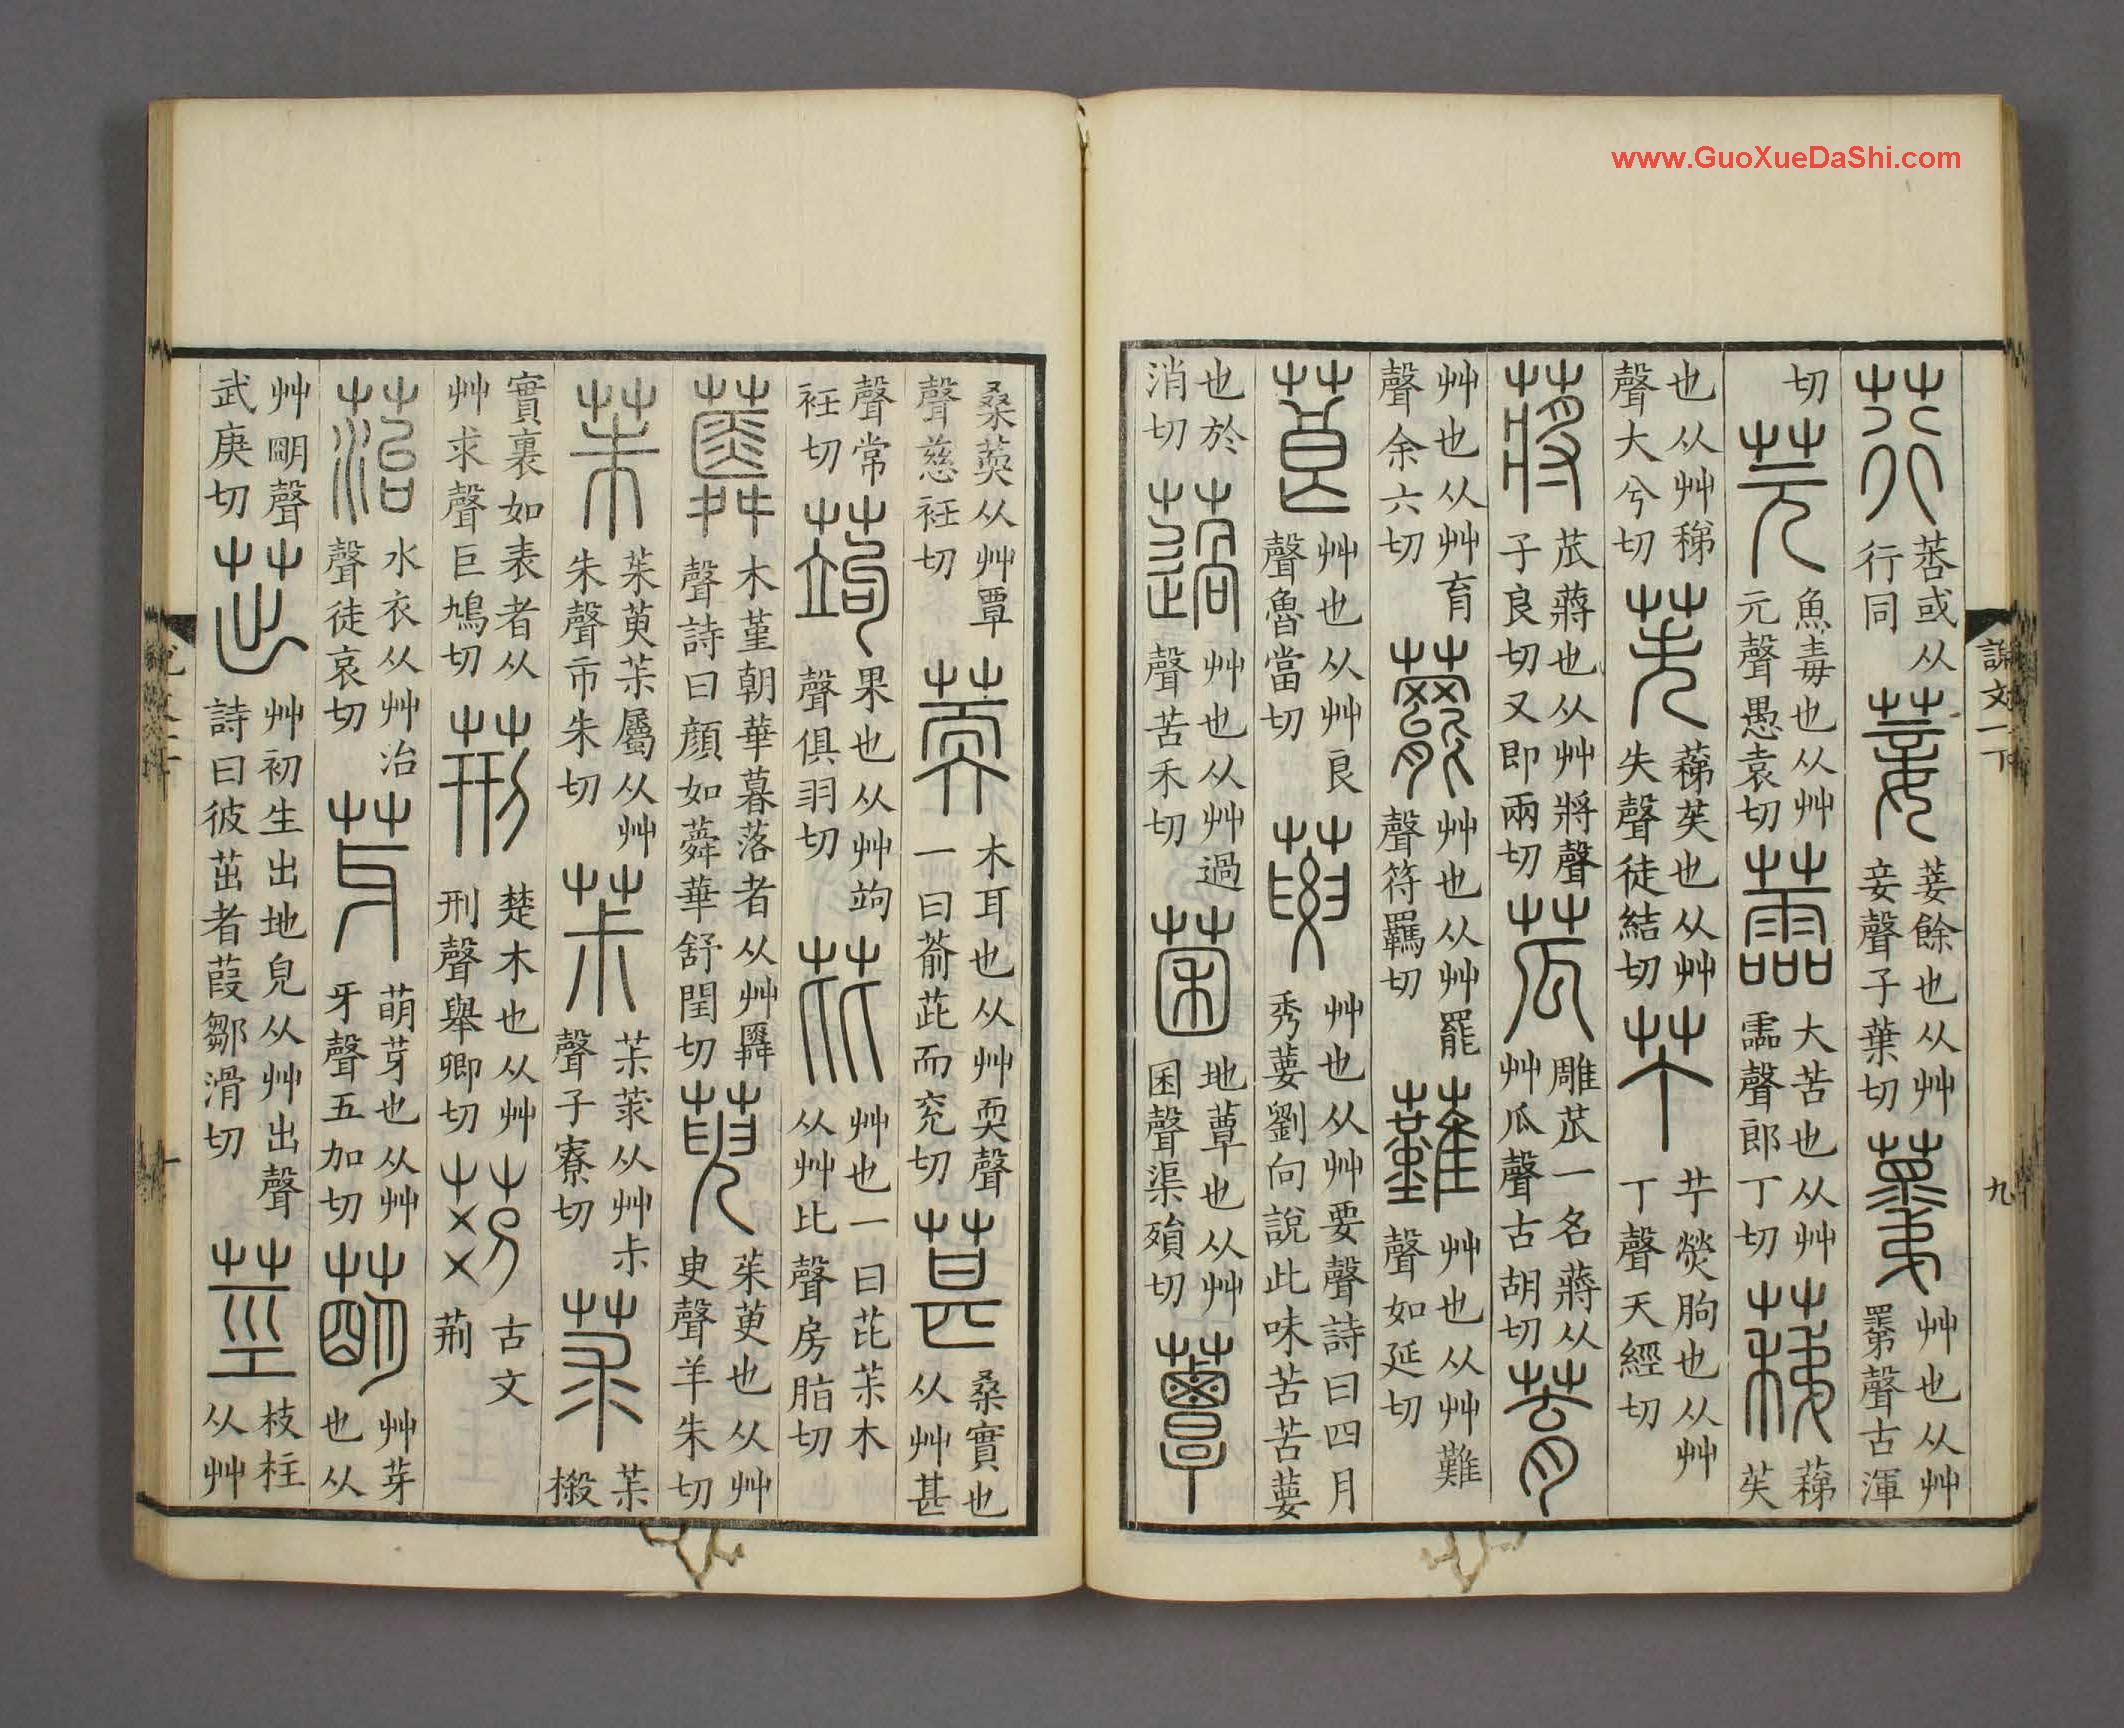 說文一下
九
荇䓷或从行同菨菨餘也从艸妾聲子葉切艸也从艸𦌾聲古渾
切芫魚毒也从艸元聲愚袁切蘦大苦也从艸霝聲郎丁切蕛蕛苵
也从艸稊聲大兮切苵蕛苵也从艸失聲徒結切艼艼熒朐也从艸丁聲天經切
蔣苽蔣也从艸將聲子良切又即兩切苽雕苽一名蔣从艸瓜聲古胡切
艸也从艸育聲余六切藣艸也从艸罷聲符羈切艸也从艸難聲如延切
莨艸也从艸良聲魯當切葽艸也从艸要聲詩曰四月秀葽劉向說此味苦苦葽
也於消切薖艸也从艸過聲苦禾切菌地蕈也从艸囷聲渠殞切蕈
桑䓴从艸覃聲慈衽切䓴木耳也从艸耎聲一曰萮茈而兗切葚桑實也从艸甚
聲常衽切蒟果也从艸竘聲俱羽切芘艸也一曰芘茮木从艸比聲房脂切
蕣木堇朝華暮落者从艸䑞聲詩曰顏如蕣華舒閏切萸茱萸也从艸臾聲羊朱切
茱茱萸茮屬从艸朱聲市朱切茮茮莍从艸尗聲子寮切莍茮樧
實裏如表者从艸求聲巨鳩切荊楚木也从艸刑聲舉卿切古文荊
菭水衣从艸治聲徒哀切芽萌芽也从艸牙聲五加切萌艸芽也从
艸朙聲武庚切茁艸初生出地皃从艸出聲詩曰彼茁者葭鄒滑切莖枝柱从艸
www.GuoXueDaShi.com